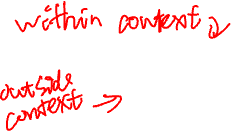 within context
outside
context →